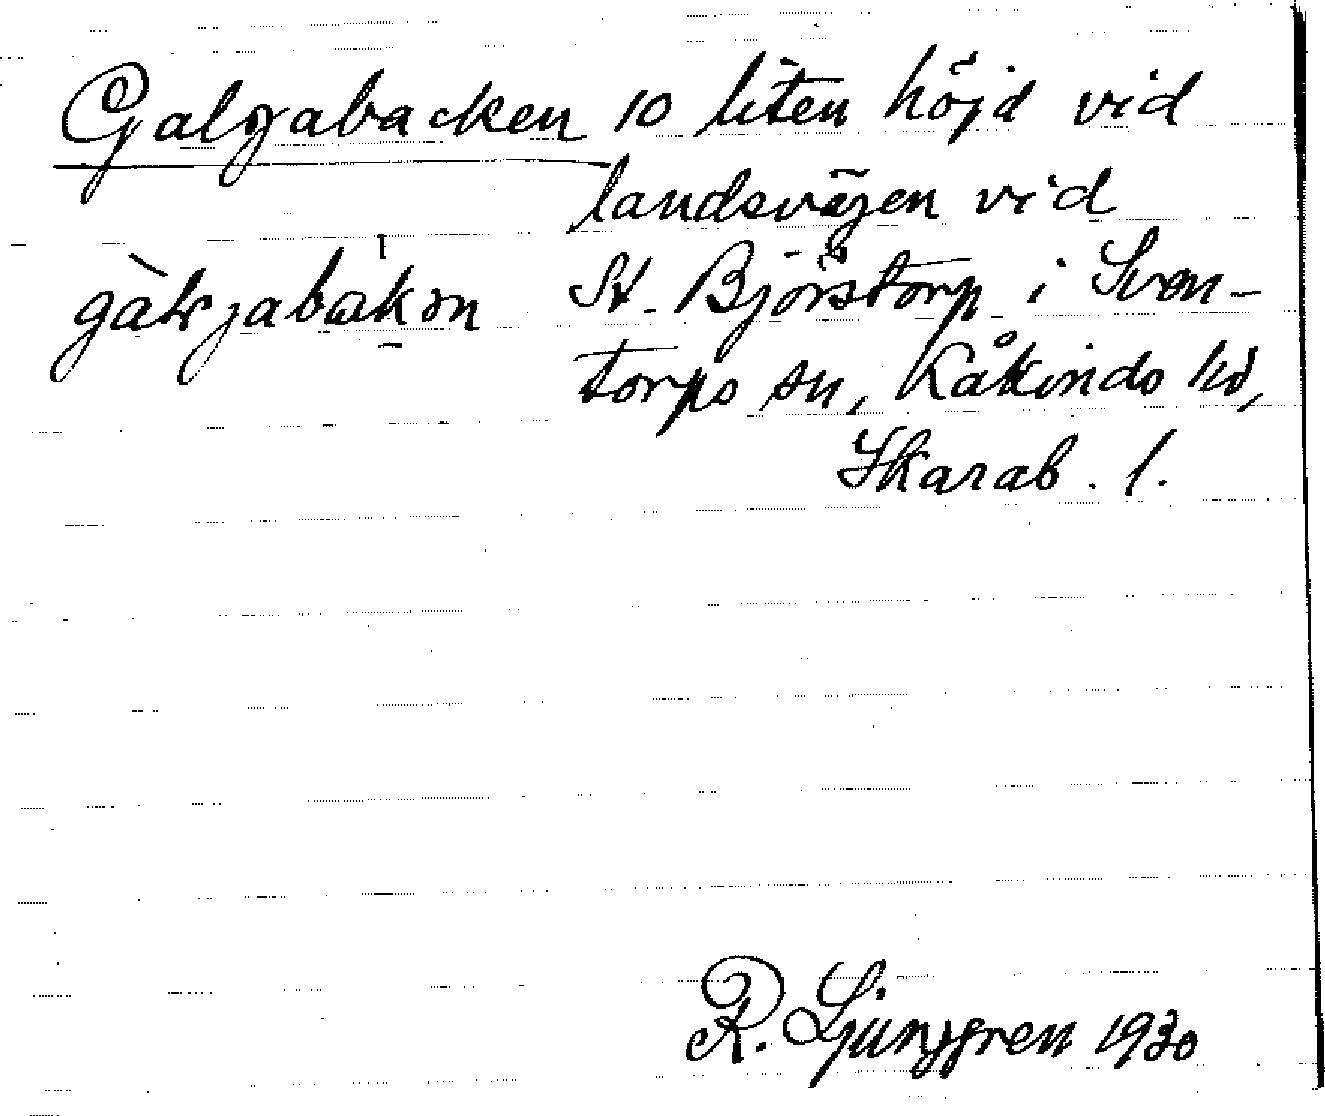 Galgabacken 10 liten höjd vid
landsvägen vid
St. Björstorp i Sven-
torps sn, Kåkinds hd,
Skarab. l.
R. Ljunggren 1930